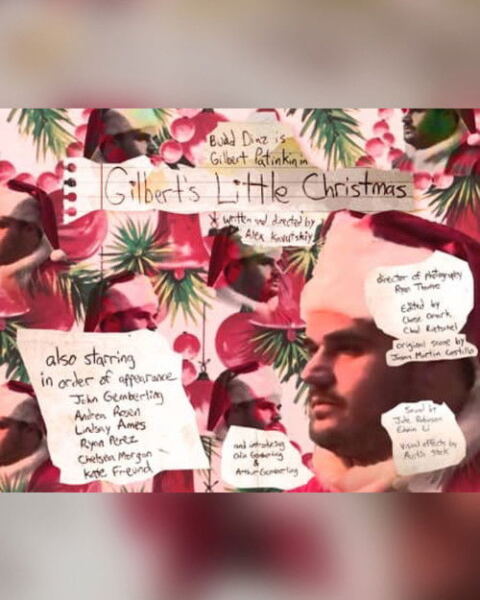 Budd Diaz is
Gilbert Patinkin in
Gilbert's Little Christmas
written and directed by
Alex Kavutskiy
director of photography
Ryan Thomas
Edited by
Chad
original score by
Juan Martin Castillo
also starring
in order of appearance
John Gemberling
Andrea Rosen
Lindsay Ames
Ryan Perez
Chelsea Morgan
Kate Freund
and introducing
Gemberling
&
Arthur Gemberling
Sound by
Robinson
Edwin Li
Visual effects by
Austin